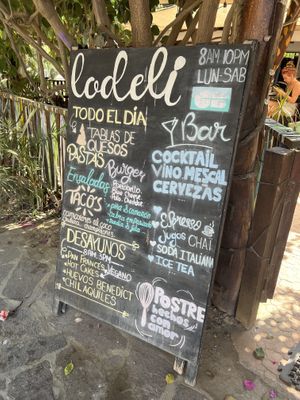 lodeli
8AM-10PM
LUN-SAB
TODO EL DÍA
TABLAS DE
QUESOS
PASTAS
Ensaladas
TACOS
Burger
Portobello
Bar
COCKTAIL
VINO MESCAL
CERVEZAS
Espresso
Jugos CHAI
SODA ITALIANA
ICE TEA
DESAYUNOS
8AM-3PM
PAN FRANCÉS VEGANO
HOT CAKES
HUEVOS BENEDICT
CHILAQUILES
POSTRE
hechos
con
amor